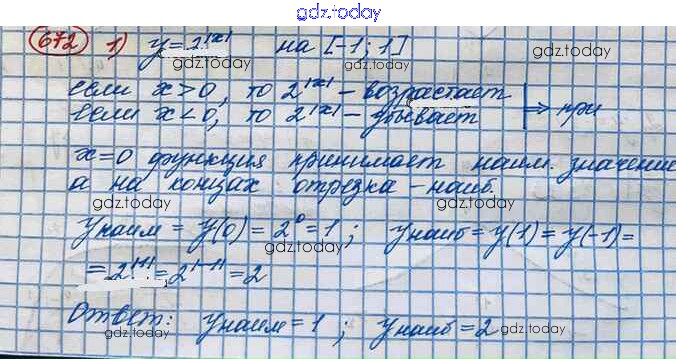 gdz.today
672 1) y = 2^|x| на [-1; 1]
gdz.today
gdz.today
если x > 0, то 2^|x| – возрастает
если x < 0, то 2^|x| – убывает ⇒ при
gdz.today
gdz.today
x = 0 функция принимает наим. значение
а на концах отрезка – наиб.
gdz.today
gdz.today
y наим = y(0) = 2^0 = 1 ; y наиб = y(1) = y(-1) =
gdz.today
gdz.today
= 2^|1| = 2^|-1| = 2
gdz.today
Ответ: y наим = 1 ; y наиб = 2
gdz.today
gdz.today
gdz.today